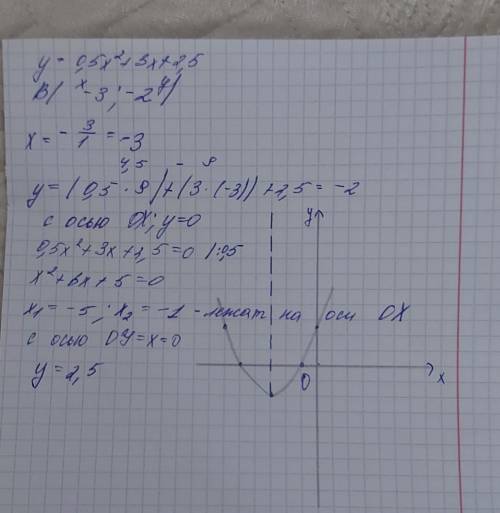 y = 0,5x²+3x+2,5
B( x -3 ; -2 y )
x = - 3/1 = -3
4,5 - 9
y = (0,5 · 9)+(3·(-3)) +2,5 = -2
с осью OX; y=0
0,5x²+3x+2,5=0 /:0,5
x²+6x+5=0
x₁ = -5 ; x₂ = -1 - лежат на оси OX
с осью OY = x=0
y = 2,5
y
0
x